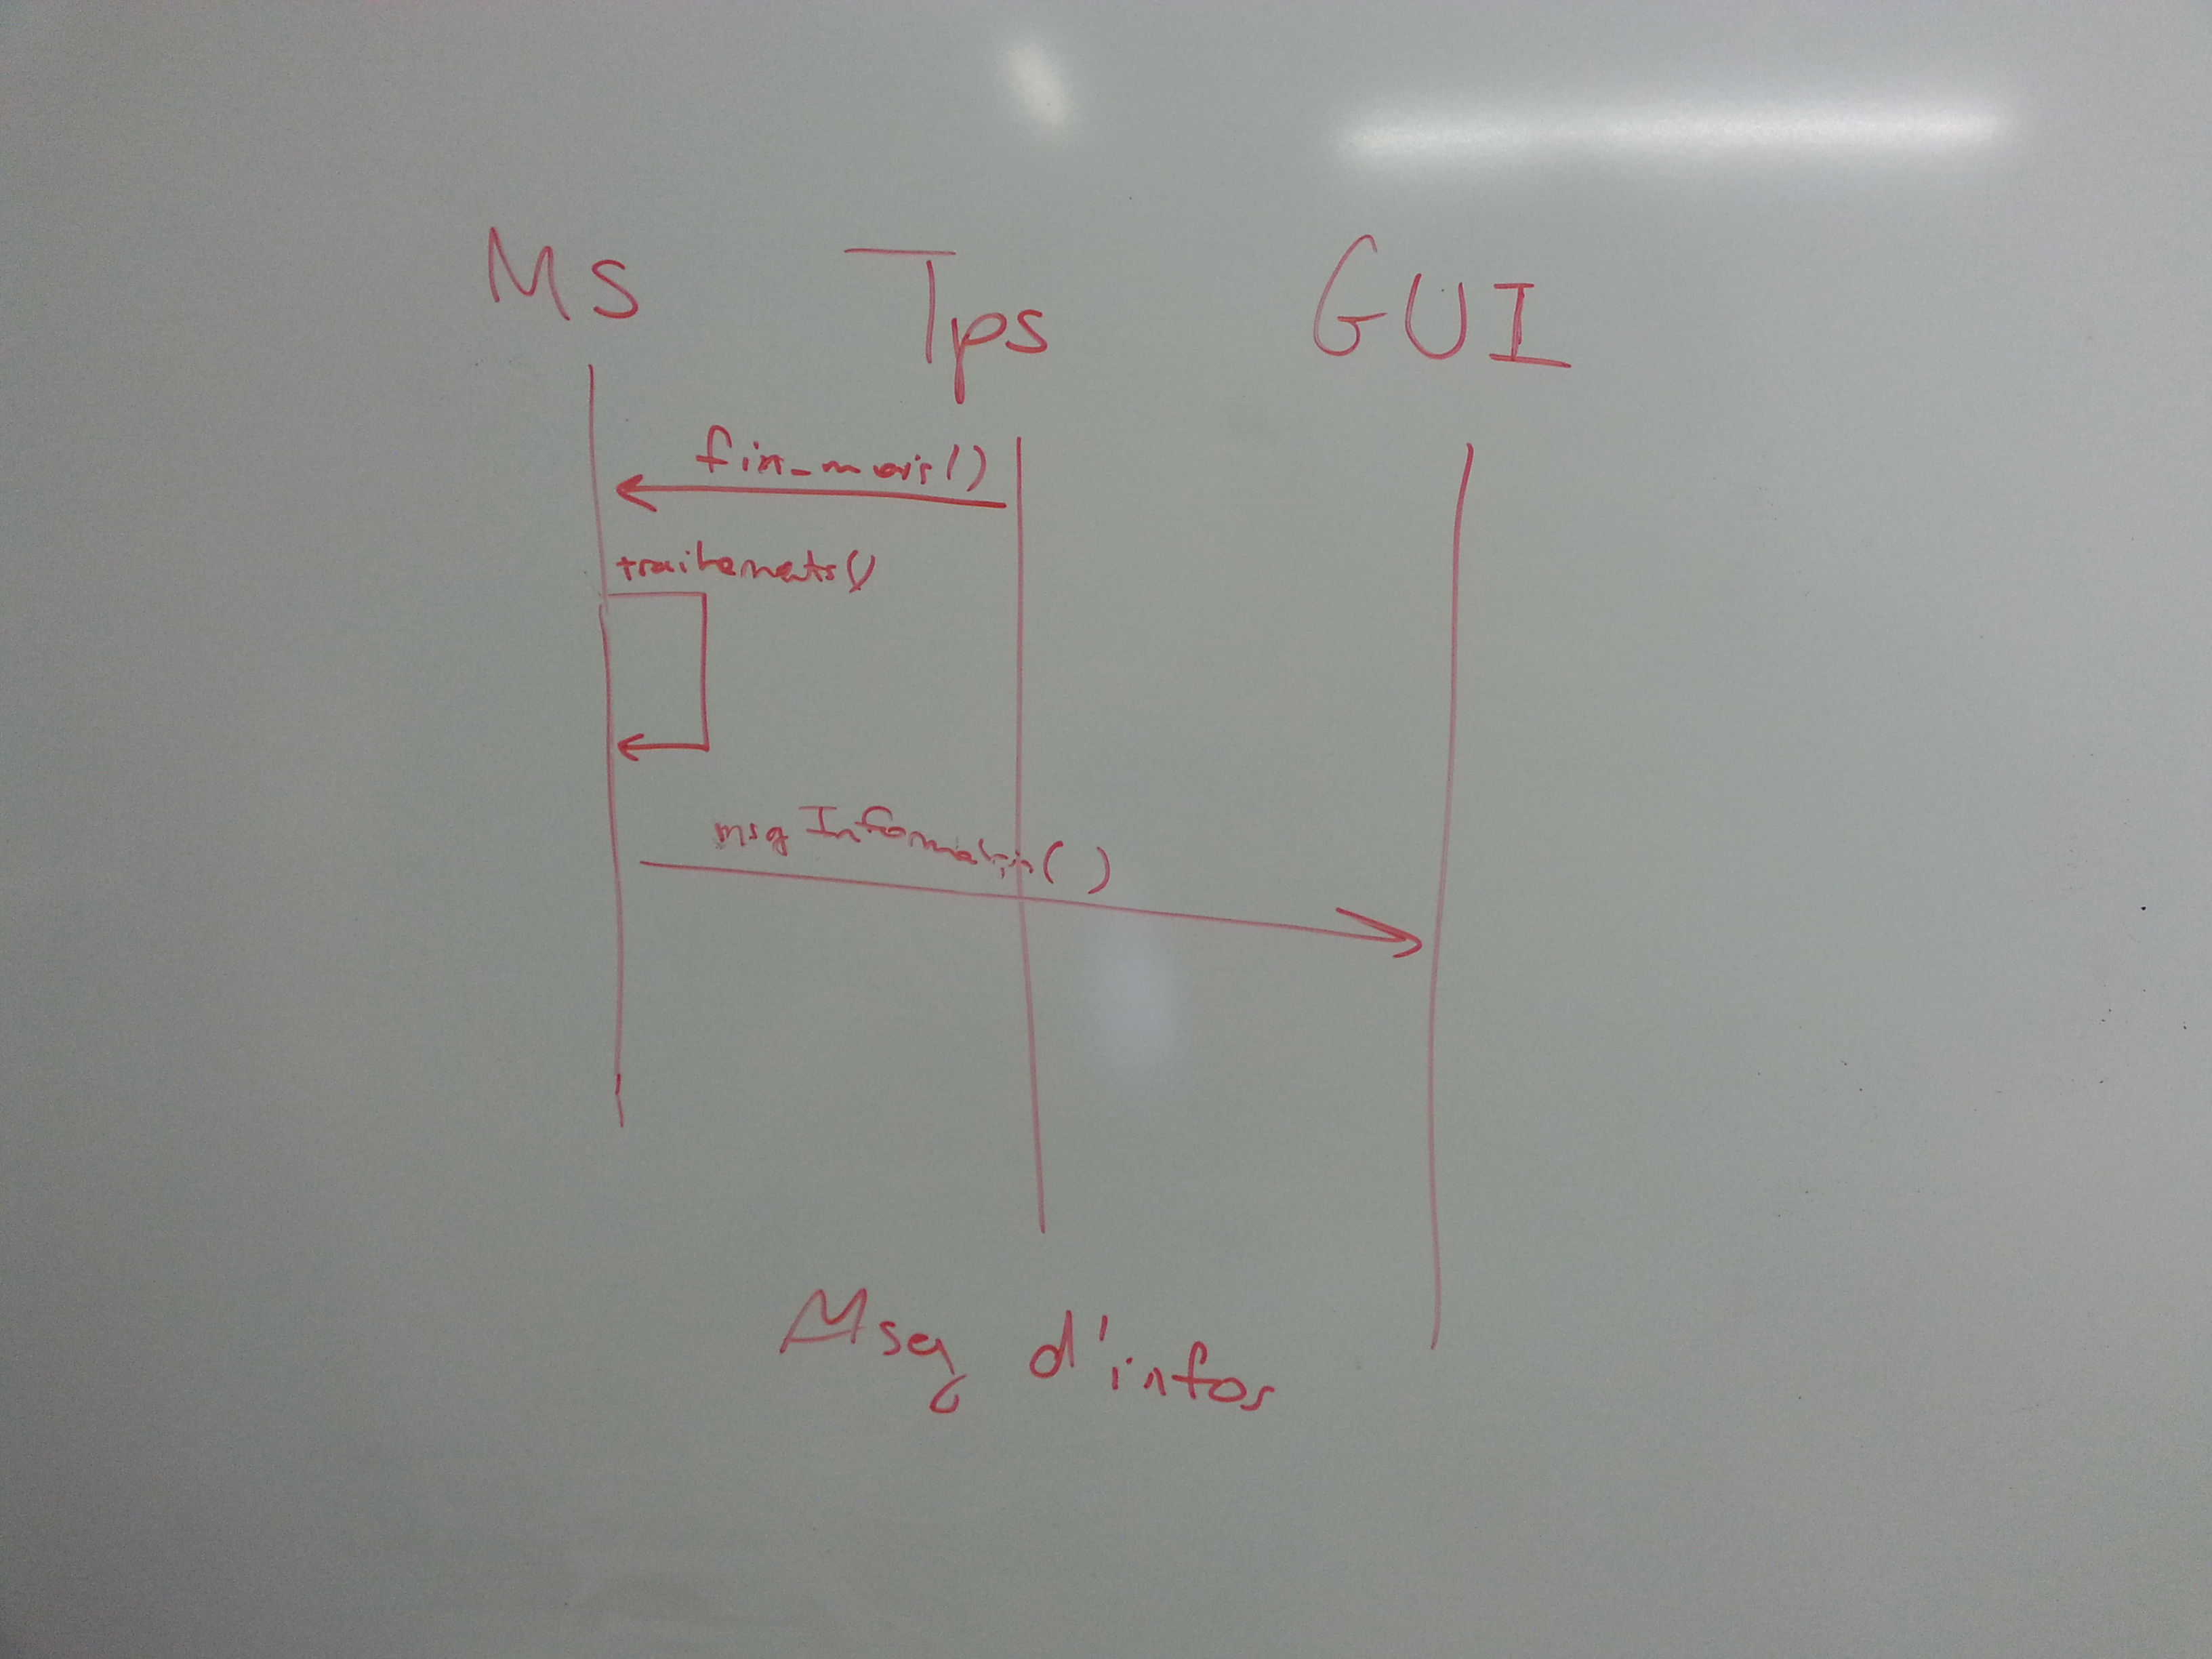 MS Tps GUI
fin_mois()
traitements()
msgInformation()
Msg d'infos